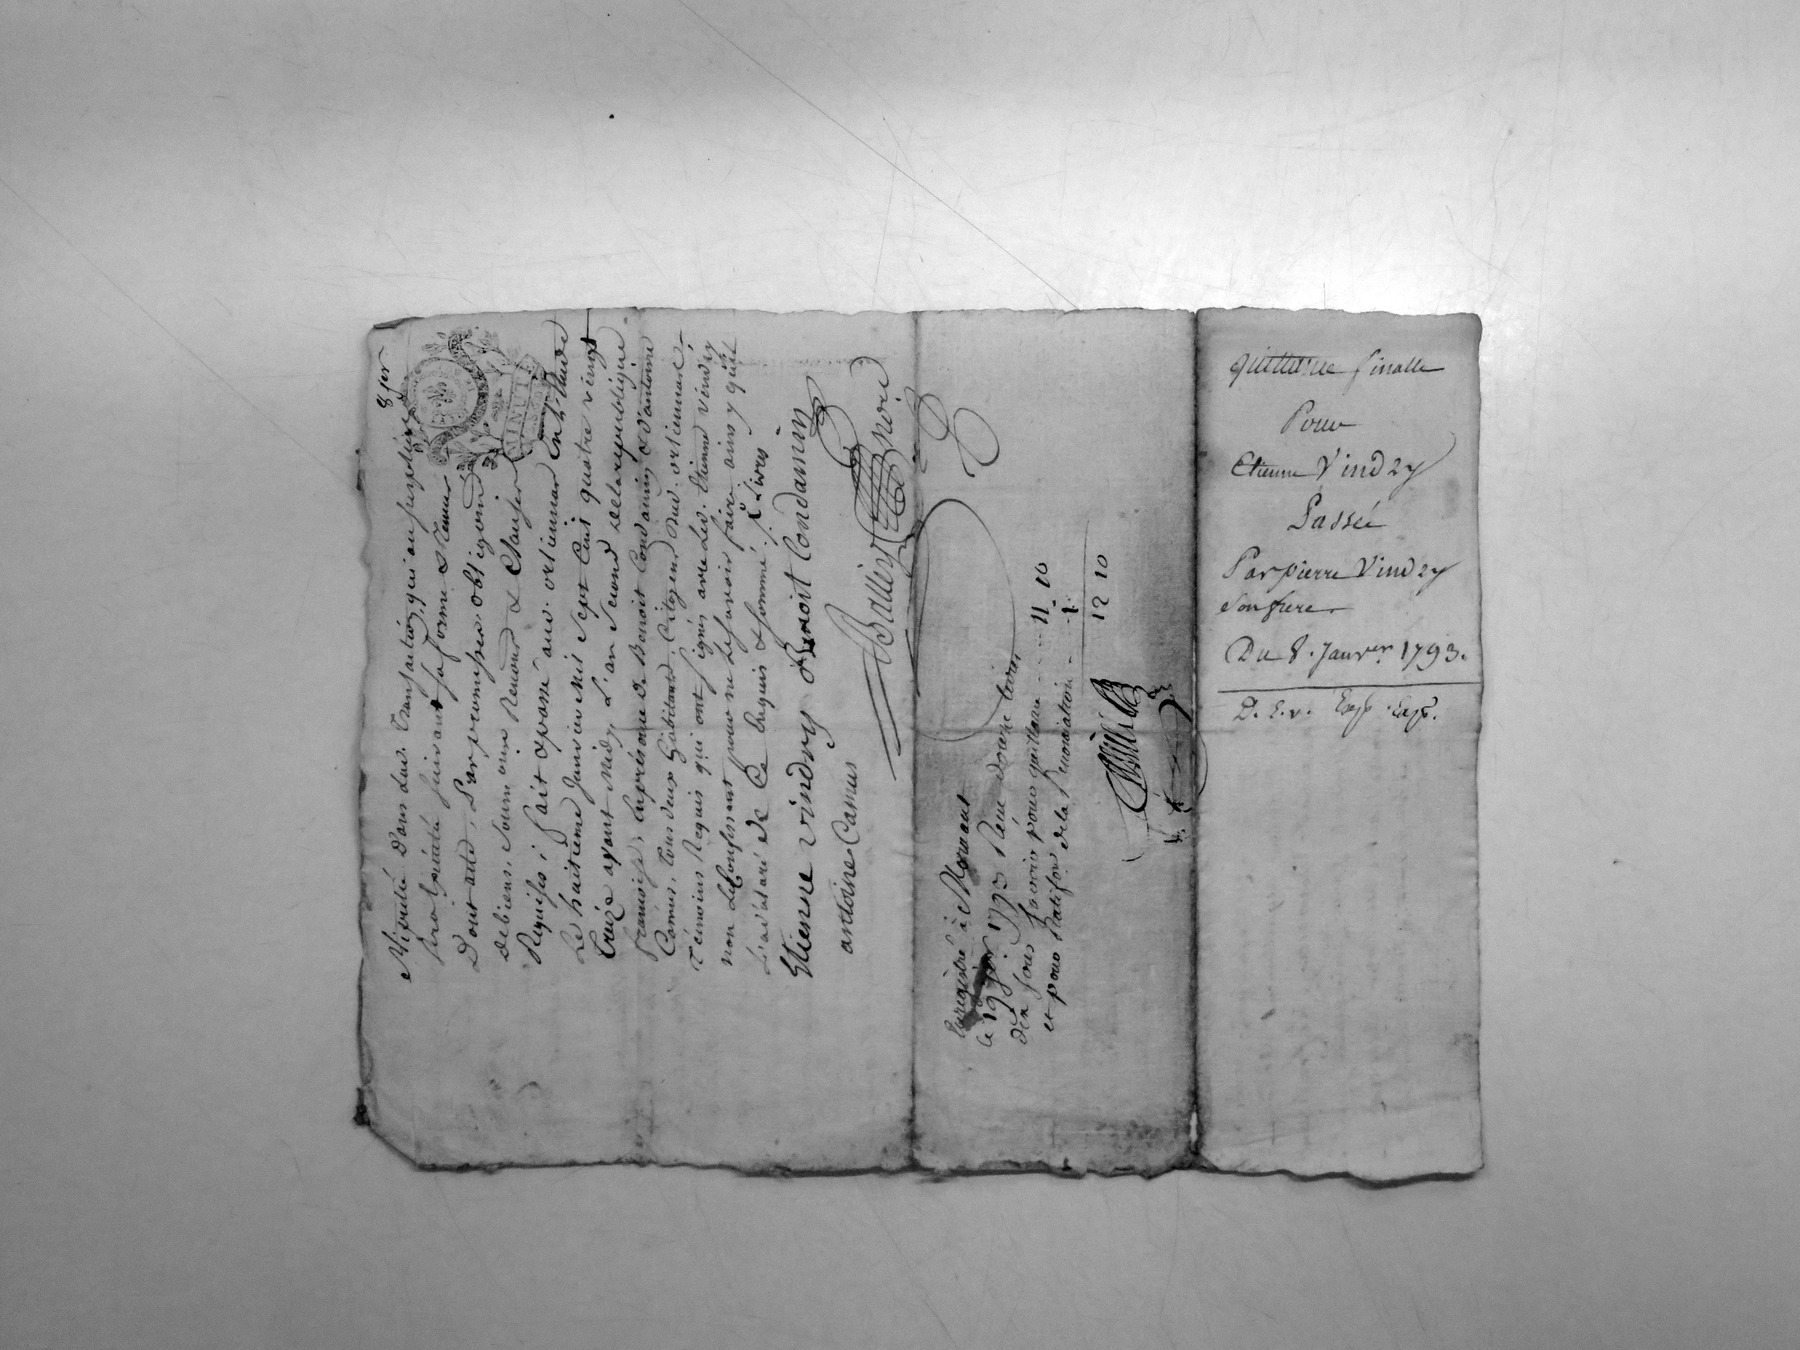 8 jer
MINUT
Stipulée dans lad. transaction, qui au surplus
sera exécutée suivant sa forme & teneur
Dont acte, Par promesses obligeons
de biens, soumissions Renons & Clauses
Requises, fait & passé aud. ortiennar En Etude
Le huitieme Janvier Mil sept Cent quatre vingt
treize avant Midy, L'an second de la republique
francoise, En présence de Benoit Condamin & d'antoine
Camus, tous deux habitants, Citoyens dud. ortiennar
Témoins Requis qui ont signés avec led. Etienne vindry
non le Confessant pour ne le savoir faire ainsy qu'il
l'a déclaré de Ce Enquis & sommé. / Livres
Etienne vindry Benoit Condamin
antoine Camus Balley Noire
Enregistré à Mornant
le 19 jer 1793 Réçu douze livres
dix sous savoir pour quittance 11 10
et pour Ratifon de la Renonciation 1
12 10
quittance finalle
Pour
Etienne Vindry
Passée
Par pierre Vindry
son frere
Du 8. Janver 1793.
D. E. v. Exp. Exp.